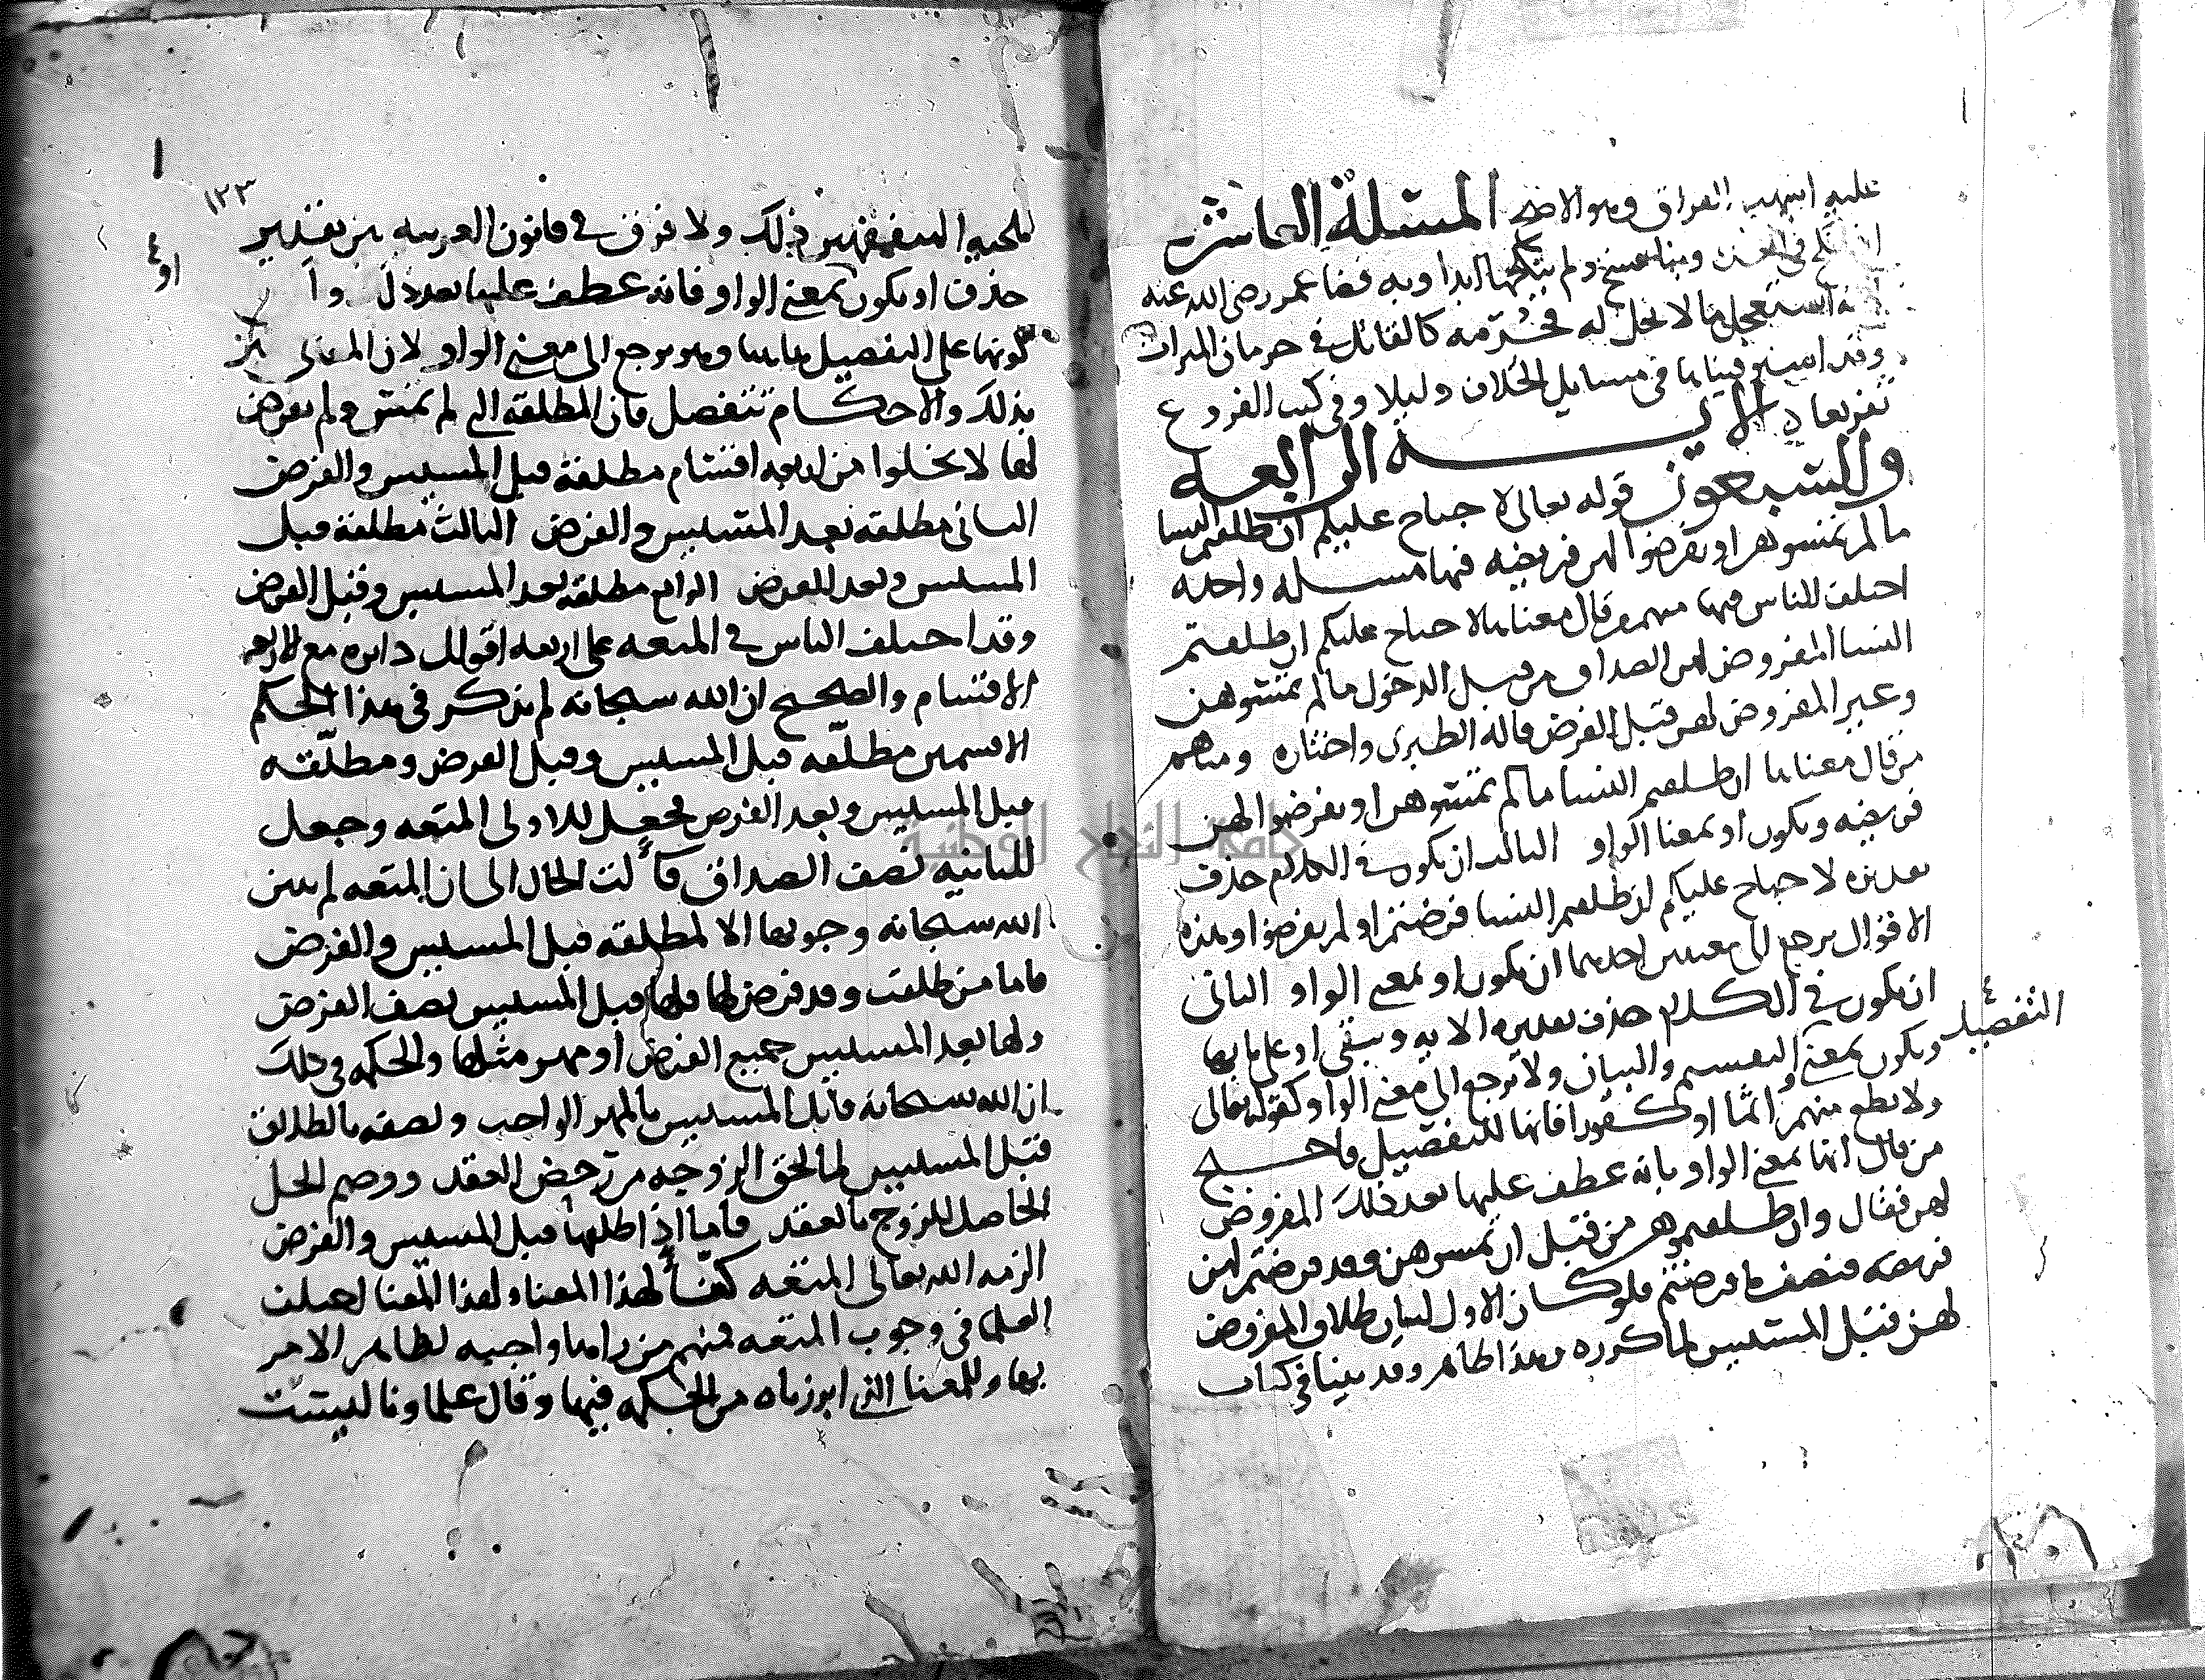 عليه اشهب الفراق وهو الاصح المسئلة العاشرة
اذا نكح في العدة وبنا فسخ ولم ينكحها ابدا وبه قضا عمر رضي الله عنه
لانه استعجل ما لا يحل له فحُرّمه كالقاتل في حرمان الميراث
وقد استوفيناها في مسايل الخلاف دليلا وفي كتب الفروع
تفريعا الايـــــه الرابعه
والسبعون قوله تعالى لا جناح عليكم ان طلقتم النسا
ما لم تمسوهن او تفرضوا لهن فريضه فيها مسـله واحده
اختلف الناس فيها منهم من قال معناها لا جناح عليكم ان طلقتم
النسا المفروض لهن الصداق من قبل الدخول ما لم تمسوهن
وغير المفروض لهن قبل الفرض قاله الطبري واختاره ومنهم
من قال معناها ان طلقتم النسا ما لم تمسوهن او تفرضوا لهن
فريضه وتكون او بمعنا الواو الثالث ان يكون في الكلام حذف
تقديره لا جناح عليكم ان طلقتم النسا فرضتم او لم تفرضوا وهذه
الاقوال ترجع الى معنيين احدهما ان تكون او بمعنى الواو الثاني
ان يكون في الكـلام حذف تقديره الايه وتبقى او على بابها
وتكون بمعنى التقسيم والبيان ولا ترجع الى معنى الواو كقوله تعالى
التفصيل
ولا تطع منهم اثما او كـفورا فانها للتفصيل واحـــتج
من قال انها بمعنى الواو بانه عطف عليها بعد ذلك المفروض
لهن فقال وان طلقتموهن من قبل ان تمسوهن وقد فرضتم لهن
فريضه فنصف ما فرضتم فلو كـان الاول لبيان طلاق المفروض
لهن قبل المسيس لما كرره وهذا ظاهر وقد بينا في كتاب
١٢٣
ملجيه المتفقهين ذلك ولا فرق في قانون العربيه بين تقدير
حذف او تكون بمعنى الواو فانه عطف عليها بعد ذلك
او
كونها على التفصيل بما بينا وهو يرجع الى معنى الواو لان المعاني تتميز
بذلك والاحكـام تتفصل فان المطلقه التي لم تمس ولم يفرض
لها لا يخلوا من اربعه اقسام مطلقة قبل المسيس والفرض
الثاني مطلقه بعد المسيس والفرض الثالث مطلقة قبل
المسيس وبعد الفرض الرابع مطلقة بعد المسيس وقبل الفرض
وقد اختلف الناس في المتعه على اربعه اقوال دايره مع الاربعه
الاقسام والصحيح ان الله سبحانه لم يذكر في هذا الحكم
الا قسمين مطلّقه قبل المسيس وقبل الفرض ومطلّقه
قبل المسيس وبعد الفرض فجعل للاولى المتعه وجعل
للثانيه نصف الصداق فآلت الحال الى ان المتعه لم يبين
الله سبحانه وجوبها الا لمطلقه قبل المسيس والفرض
فاما من طلقت وقد فرض لها فلها قبل المسيس نصف الفرض
ولها بعد المسيس جميع الفرض او مهر مثلها والحكمه في ذلك
ان الله سبحانه قابل المسيس بالمهر الواجب ونصفه بالطلاق
قبل المسيس لما لحق الزوجه من رحض العقد ووصم الحل
الحاصل للزوج بالعقد فاما اذا طلقها قبل المسيس والفرض
الزمه الله تعالى المتعه كفأ لهذا المعنا ولهذا المعنا اختلف
العلما في وجوب المتعه فمنهم من راها واجبه لظاهر الامر
بها وللمعنا الذي ابرزناه من الحكمه فيها وقال علماونا ليست